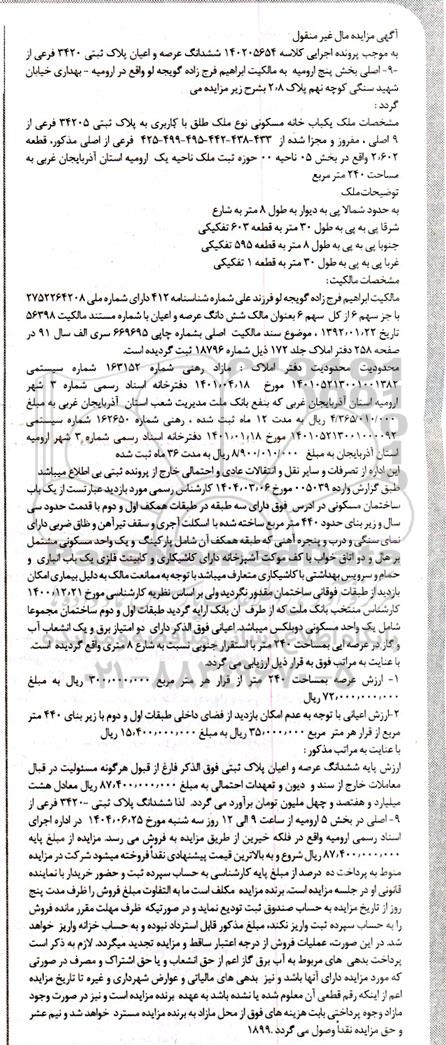 آگهی مزایده مال غیر منقول
به موجب پرونده اجرایی کلاسه ۱۴۰۲۰۵۶۵۴ ششدانگ عرصه و اعیان پلاک ثبتی ۳۴۲۰ فرعی از
-۹- اصلی بخش پنج ارومیه به مالکیت ابراهیم فرج زاده گویجه لو واقع در ارومیه - بهداری خیابان
شهید سنگی کوچه نهم پلاک ۲/۸ بشرح زیر مزایده می
گردد :
مشخصات ملک یکباب خانه مسکونی نوع ملک طلق با کاربری به پلاک ثبتی ۳۴۲۰۵ فرعی از
۹ اصلی ، مفروز و مجزا شده از ۴۳۳-۴۳۸-۴۴۲-۴۹۵-۴۹۹-۴۲۵ فرعی از اصلی مذکور، قطعه
۲/۶۰۲ واقع در بخش ۰۵ ناحیه ۰۰ حوزه ثبت ملک ناحیه یک ارومیه استان آذربایجان غربی به
مساحت ۲۴۰ متر مربع
توضیحات ملک
به حدود شمالا پی به دیوار به طول ۸ متر به شارع
شرقا پی به پی به طول ۳۰ متر به قطعه ۶۰۳ تفکیکی
جنوبا پی به پی به طول ۸ متر به قطعه ۵۹۵ تفکیکی
غربا پی به پی به طول ۳۰ متر به قطعه ۱ تفکیکی
مشخصات مالکیت:
مالکیت ابراهیم فرج زاده گویجه لو فرزند علی شماره شناسنامه ۴۱۲ دارای شماره ملی ۲۷۵۲۲۶۴۲۰۸
با جز سهم ۶ از کل سهم ۶ بعنوان مالک شش دانگ عرصه و اعیان با شماره مستند مالکیت ۵۶۳۹۸
تاریخ ۱۳۹۲/۰۱/۲۲ ، موضوع سند مالکیت اصلی بشماره چاپی ۶۶۹۶۹۵ سری الف سال ۹۱ در
صفحه ۲۵۸ دفتر املاک جلد ۱۷۲ ذیل شماره ۱۸۷۹۶ ثبت گردیده است.
محدودیت محدودیت دفتر املاک : مازاد رهنی شماره ۱۶۳۱۵۲ شماره سیستمی
۱۴۰۱۰۵۲۱۳۰۰۱۰۰۱۳۸۲ مورخ ۱۴۰۱/۰۴/۱۸ دفترخانه اسناد رسمی شماره ۳ شهر
ارومیه استان آذربایجان غربی که بنفع بانک ملت مدیریت شعب استان آذربایجان غربی به مبلغ
ریال به مدت ۱۲ ماه ثبت شده ، رهنی شماره ۱۶۲۶۵۰ شماره سیستمی
۱۴۰۱۰۵۲۱۳۰۰۱۰۰۰۰۹۲ مورخ ۱۴۰۱/۰۱/۱۸ دفترخانه اسناد رسمی شماره ۳ شهر ارومیه
استان آذربایجان به مبلغ ۸/۹۰۰/۰۱۰/۰۰۰ ریال به مدت ۳۶ ماه ثبت شده
این اداره از تصرفات و سایر نقل و انتقالات عادی و احتمالی خارج از پرونده ثبتی بی اطلاع میباشد
طبق گزارش وارده ۰۰۵۰۳۹ مورخ ۱۴۰۴/۰۳/۰۶ کارشناس رسمی مورد بازدید عبارتست از یک باب
ساختمان مسکونی در ادرس فوق دارای سه طبقه در طبقات همکف اول و دوم با قدمت حدود سی
سال و زیر بنای حدود ۴۴۰ متر مربع ساخته شده با اسکلت آجری و سقف تیرآهن و طاق ضربی دارای
نمای سنگی و درب و پنجره آهنی که طبقه همکف آن شامل پارکینگ و یک واحد مسکونی مشتمل
بر هال و دو اتاق خواب با کف موکت آشپزخانه دارای کاشیکاری و کابینت فلزی یک باب انباری و
حمام و سرویس بهداشتی با کاشیکاری متعارف میباشد با توجه به ممانعت مالک به دلیل بیماری امکان
بازدید از طبقات فوقانی ساختمان مقدور نگردید ولی بر اساس نظریه کارشناسی مورخ ۱۴۰۰/۱۲/۲۱
کارشناس منتخب بانک ملت که از طرف آن بانک ارایه گردید طبقات اول و دوم ساختمان مجموعا
شامل یک واحد مسکونی دوبلکس میباشد. اعیانی فوق الذکر دارای دو امتیاز برق و یک انشعاب آب
و گاز در عرصه ایی بمساحت ۲۴۰ متر با استقرار جنوبی نسبت به شارع ۸ متری واقع گردیده است.
با عنایت به مراتب فوق به قرار ذیل ارزیابی می گردد.
۱- ارزش عرصه بمساحت ۲۴۰ متر از قرار هر متر مربع ۳۰۰/۰۰۰/۰۰۰ ریال به مبلغ
۷۲/۰۰۰/۰۰۰/۰۰۰ ریال
۲-ارزش اعیانی با توجه به عدم امکان بازدید از فضای داخلی طبقات اول و دوم با زیر بنای ۴۴۰ متر
مربع از قرار هر متر مربع ۳۵/۰۰۰/۰۰۰ ریال به مبلغ ۱۵/۴۰۰/۰۰۰/۰۰۰ ریال
با عنایت به مراتب مذکور :
ارزش پایه ششدانگ عرصه و اعیان پلاک ثبتی فوق الذکر فارغ از قبول هرگونه مسئولیت در قبال
معاملات خارج از سند و دیون و تعهدات احتمالی به مبلغ ۸۷/۴۰۰/۰۰۰/۰۰۰ ریال معادل هشت
میلیارد و هفتصد و چهل ملیون تومان برآورد می گردد. لذا ششدانگ پلاک ثبتی -۳۴۲۰ فرعی از
۹- اصلی در بخش ۵ ارومیه از ساعت ۹ الی ۱۲ روز سه شنبه مورخ ۱۴۰۴/۰۶/۲۵ در اداره اجرای
اسناد رسمی ارومیه واقع در فلکه خیرین از طریق مزایده به فروش می رسد. مزایده از مبلغ پایه
۸۷/۴۰۰/۰۰۰/۰۰۰ ریال شروع و به بالاترین قیمت پیشنهادی نقداً فروخته میشود شرکت در مزایده
منوط به پرداخت ده درصد از مبلغ پایه کارشناسی به حساب سپرده ثبت و حضور خریدار یا نماینده
قانونی او در جلسه مزایده است. برنده مزایده مکلف است ما به التفاوت مبلغ فروش را ظرف مدت پنج
روز از تاریخ مزایده به حساب صندوق ثبت تودیع نماید و در صورتیکه ظرف مهلت مقرر مانده فروش
را به حساب سپرده ثبت واریز نکند، مبلغ مذکور قابل استرداد نبوده و به حساب خزانه واریز خواهد
شد. در این صورت، عملیات فروش از درجه اعتبار ساقط و مزایده تجدید میگردد. لازم به ذکر است
پرداخت بدهی های مربوط به آب برق گاز اعم از حق انشعاب و یا حق اشتراک و مصرف در صورتی
که مورد مزایده دارای آنها باشد و نیز بدهی های مالیاتی و عوارض شهرداری و غیره تا تاریخ مزایده
اعم از اینکه رقم قطعی آن معلوم شده یا نشده باشد به عهده برنده مزایده است و نیز در صورت وجود
مازاد وجوه پرداختی بابت هزینه های فوق از محل مازاد به برنده مزایده مسترد خواهد شد و نیم عشر
و حق مزایده نقداً وصول می گردد ۱۸۹۹۰